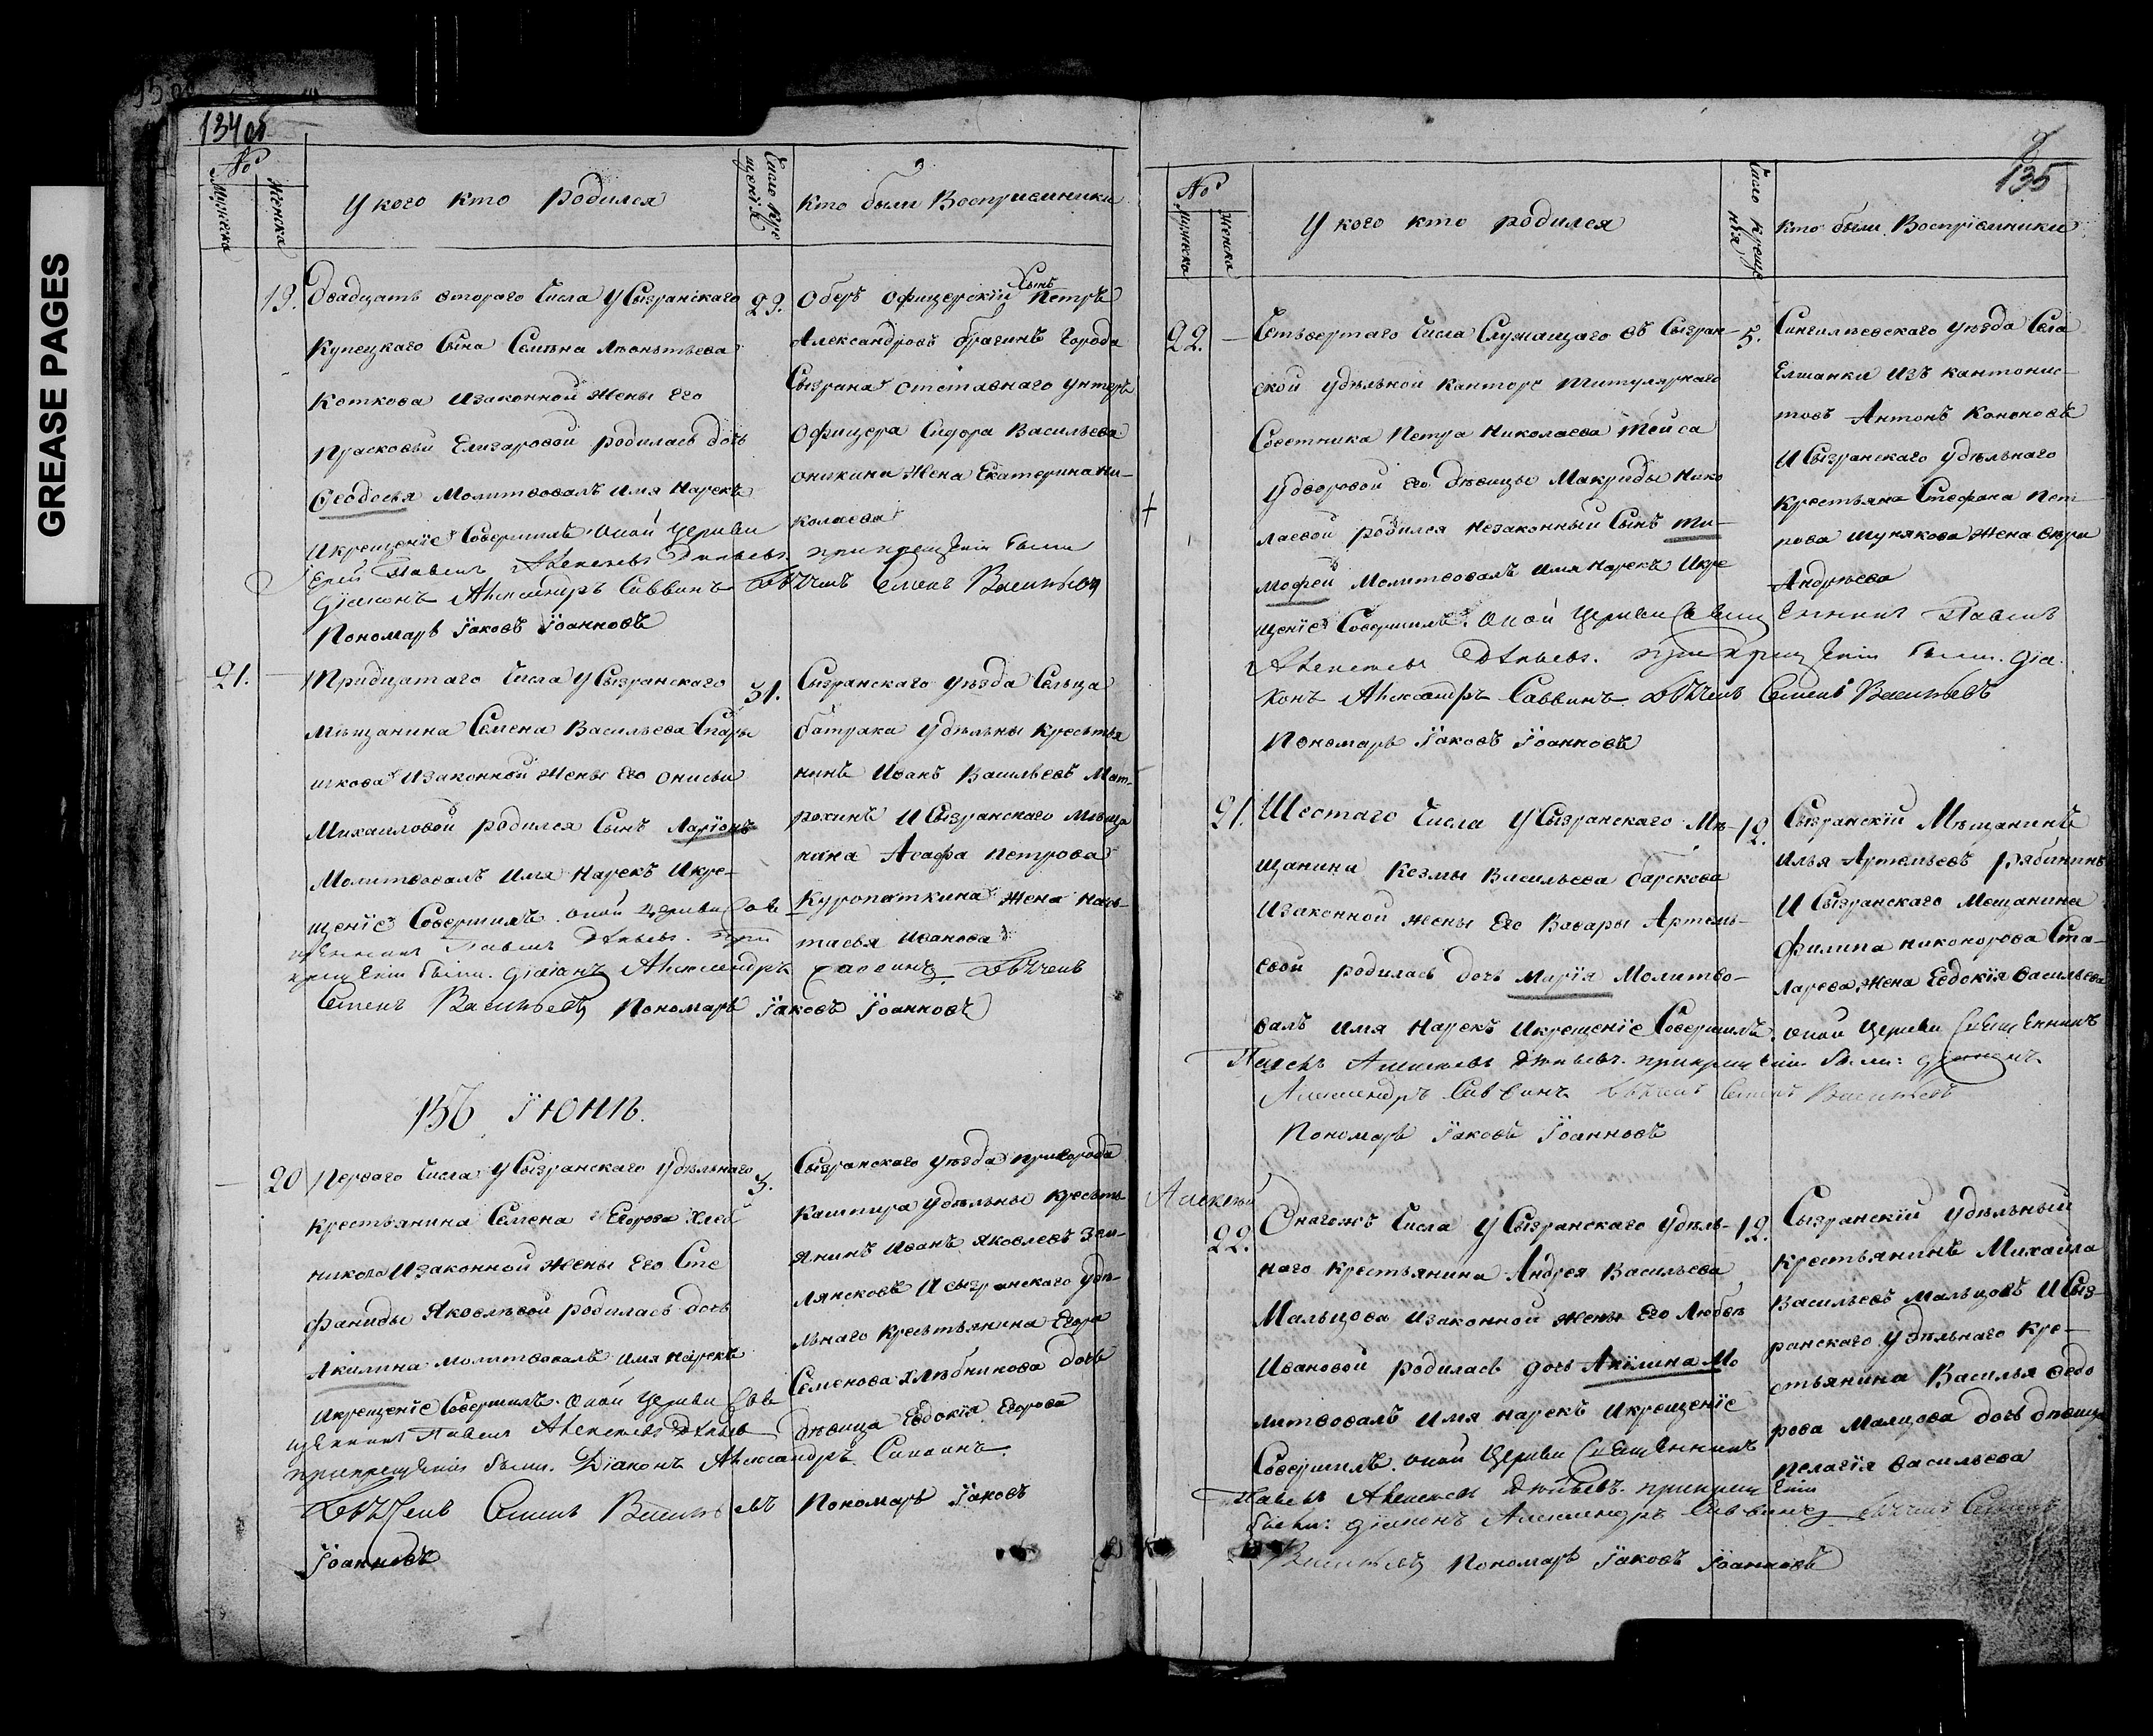 GREASE PAGES
134 об
№
Мужеска
Женска
У кого кто родился
Число кре
щенїя
Кто были Восприемники
19.
Двадцать второго Числа У Сызранскаго
Купецкаго Сына Семѣна Леонтьева
Коткова Изаконной Жены Его
Прасковьи Елизаровой родилась дочь
Феодосья Молитвовалъ Имя Нарекъ
Икрещенїе Совершилъ оной Церкви
Ерей Павелъ Алексѣевъ при крещенїи были
Дїаконъ Александръ Саввинъ Дьячекъ Семенъ Васильевъ
Пономарь Їаковъ Їоанновъ
23.
Оберъ Офицерскїй Сынъ Петръ
Александровъ Брагинъ Города
Сызрана отставнаго унтеръ
Офицера Сидора Васильева
Оникина Жена Екатерина Ни-
колаева
21.
Тридцатаго Числа У Сызранскаго
Мѣщанина Семена Васильева
шкова Изаконной Жены Его Онисьи
Михаиловой родился Сынъ Ларїонъ
Молитвовалъ Имя Нарекъ Икре-
щенїе Совершилъ оной Церкви Свя
щенникъ Павелъ при
крещенїи были. Дїаконъ Александръ Саввинъ Дьячекъ
Семенъ Васильевъ Пономарь Їаковъ Їоанновъ
31.
Сызранскаго уѣзда Сельца
батрака удѣльны крестья
нинъ Иванъ Васильевъ Мат-
рохинъ И Сызранскаго мѣща
нина Асафа Петрова
Куропаткина Жена Нас-
тасья Иванова
Їюнь.
20
Перваго Числа У Сызранскаго удѣльнаго
крестьянина Семена Егорова Хлеб
никова Изаконной Жены Его Сте
фаниды Яковлѣвой родилась дочь
Акилина Молитвовалъ Имя Нарекъ
Икрещенїе Совершилъ оной Церкви Свя
щенникъ Павелъ Алексѣевъ
прикрещенїи были. Дїаконъ Александръ Саввинъ
Дьячекъ Семенъ Васильевъ Пономарь Їаковъ
Їоанновъ
3.
Сызранскаго уѣзда пригорода
Кашпира удѣльны кресть
янинъ Иванъ Яковлевъ Зем-
лянсковъ И Сызранскаго удѣ-
льнаго крестьянина Егора
Семенова Хлѣбникова дочь
дѣвица Евдокїя Егорова
135
№
Мужеска
Женска
У кого кто родился
Число креще
нїя
Кто были Воспрїемники
22.
Четьвертаго Числа Служащаго въ Сызран-
ской удѣльной канторе титулярнаго
Советника Петра Николаева Тейса
у дворовой его дѣвицы Макриды Нико
лаевой родился Незаконный Сынъ Ти-
мофей Молитвовалъ Имя Нарекъ Икре
щенїе Совершилъ оной Церкви Священникъ Павелъ
Алексѣевъ при крещенїи были. Дїа-
конъ Александръ Саввинъ Дьячекъ Семенъ Васильевъ
Пономарь Їаковъ Їоанновъ
5.
Сингилѣевскаго уѣзда Села
Елшанки Изъ кантонис-
товъ Антонъ Кононовъ
И Сызранскаго удѣльнаго
крестьяна Стефана Пет-
рова Шунякова Жена Вѣра
Андрѣева
21.
Шестаго Числа У Сызранскаго Мѣ-
щанина Козмы Васильева барскова
Изаконной Жены Его Вавары Артемь-
евой родилась дочь Марїя Молитво-
валъ Имя Нарекъ Икрещенїе Совершилъ оной Церкви Священникъ
Павелъ Алексѣевъ прикрещенїи были: Дїаконъ
Александръ Саввинъ Дьячекъ Семенъ Васильевъ
Пономарь Їаковъ Їоанновъ
12.
Сызранскїй Мѣщанинъ
Илья Артемьевъ Рябининъ
И Сызранскаго Мещанина
Филипа Никонорова Ста-
ларева Жена Евдокїя Васильева
Алексѣй
22.
Оногожъ Числа У Сызранскаго удѣль-
наго крестьянина Андрея Васильева
Мальцова Изаконной Жены Его Любве
Ивановой родилась дочь Акїлина Мо
литвовалъ Имя Нарекъ Икрещенїе
Совершилъ оной Церкви Священникъ
Павелъ Алексѣевъ прикрещенїи
были: Дїаконъ Александръ Саввинъ Дьячекъ Семенъ
Васильевъ Пономарь Їаковъ Їоанновъ
12.
Сызранскїй удѣльный
крестьянинъ Михайла
Васильевъ Мальцовъ И Сыз-
ранскаго удѣльнаго кре-
стьянина Василья Федо
рова Малцова дочь дѣвица
Пелагїя Васильева